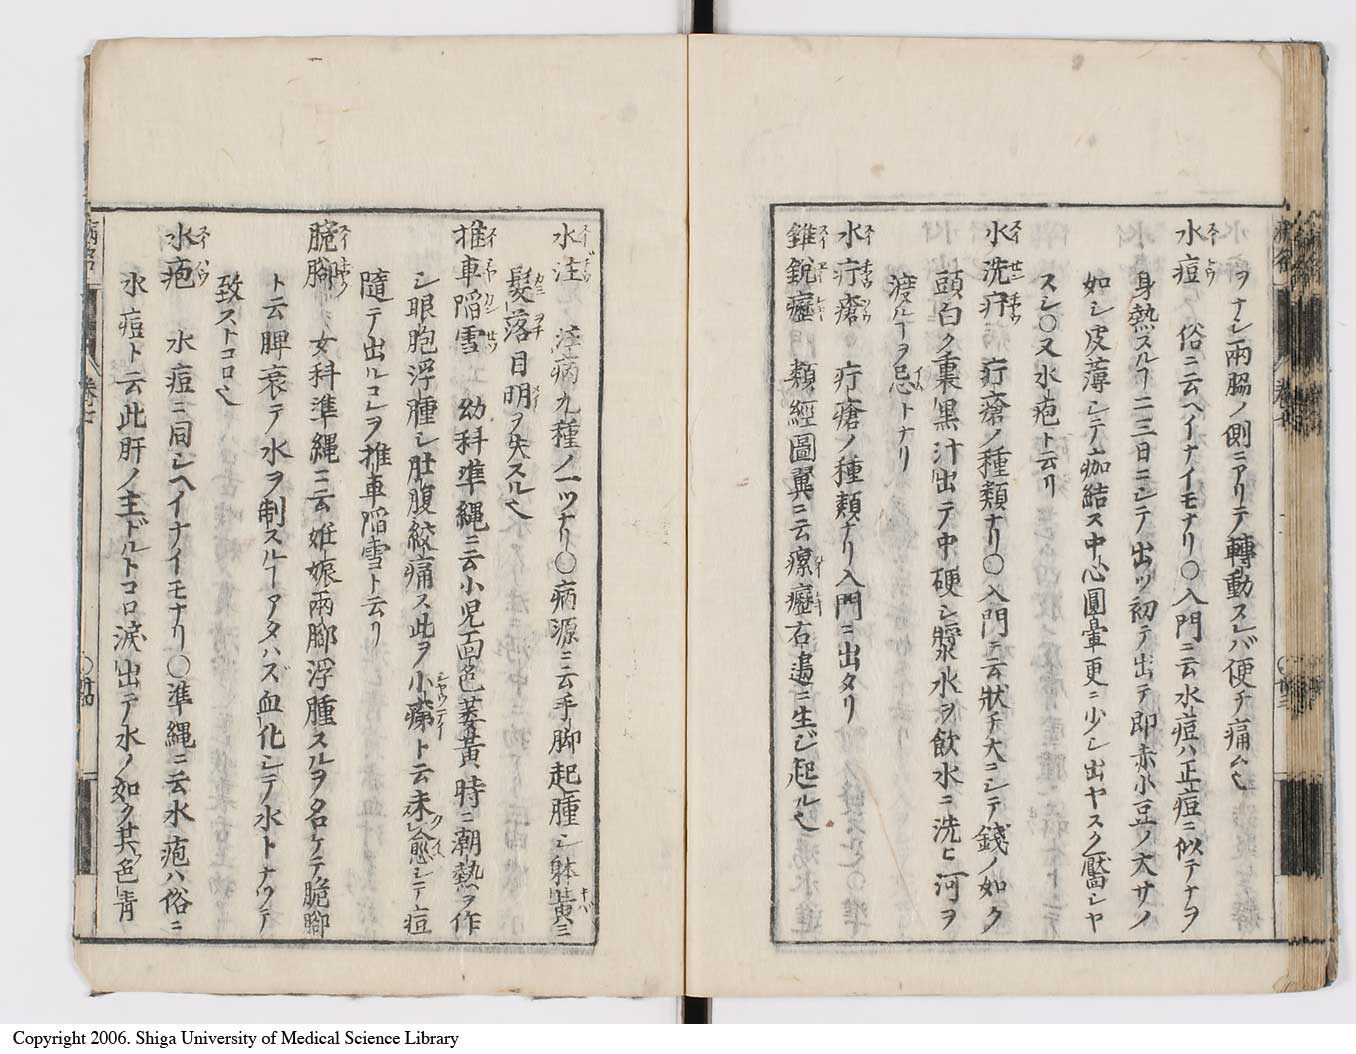 ヲナシ兩脇ノ側ニアリテ轉動スレバ便チ痛ム也
水痘 俗ニ云ヘイナイモナリ〇入門ニ云水痘ハ正痘ニ似テナヲ
身熱スルヿ二三日ニシテ出ツ初テ出テ即赤小豆ノ大サノ
如シ皮薄シテ痂結ス中心圓暈更ニ少シ出ヤスク靨シヤ
スシ〇又水疱ト云リ
水洗疔 疔瘡ノ種類ナリ〇入門ニ云狀チ大ニシテ錢ノ如ク
頭白ク裏黒汁出テ中硬シ漿水ヲ飲水ニ洗ヒ河ヲ
渡ルヿヲ忌トナリ
水疔瘡 疔瘡ノ種類ナリ入門ニ出タリ
錐銳癧 類經圖翼ニ云瘰癧右邊ニ生ジ起ル也
水注 疰病九種ノ一ツナリ〇病源ニ云手脚起腫シ躰黄ニ
髮落目明ヲ失スル也
推車陷雪 幼科準繩ニ云小兒面色萎黄時ニ潮熱ヲ作
シ眼胞浮腫シ肚腹絞痛ス此ヲ小㿃ト云未愈シテ痘
隨テ出ルコレヲ推車陷雪ト云リ
脆腳 女科準繩ニ云姙娠兩腳浮腫スルヲ名ケテ脆腳
ト云脾衰テ水ヲ制スルヿアタハズ血化シテ水トナツテ
致ストコロ也
水疱 水痘ニ同シヘイナイモナリ〇準繩ニ云水疱ハ俗ニ
水痘ト云此肝ノ主ドルトコロ淚出テ水ノ如ク其色青
Copyright 2006. Shiga University of Medical Science Library